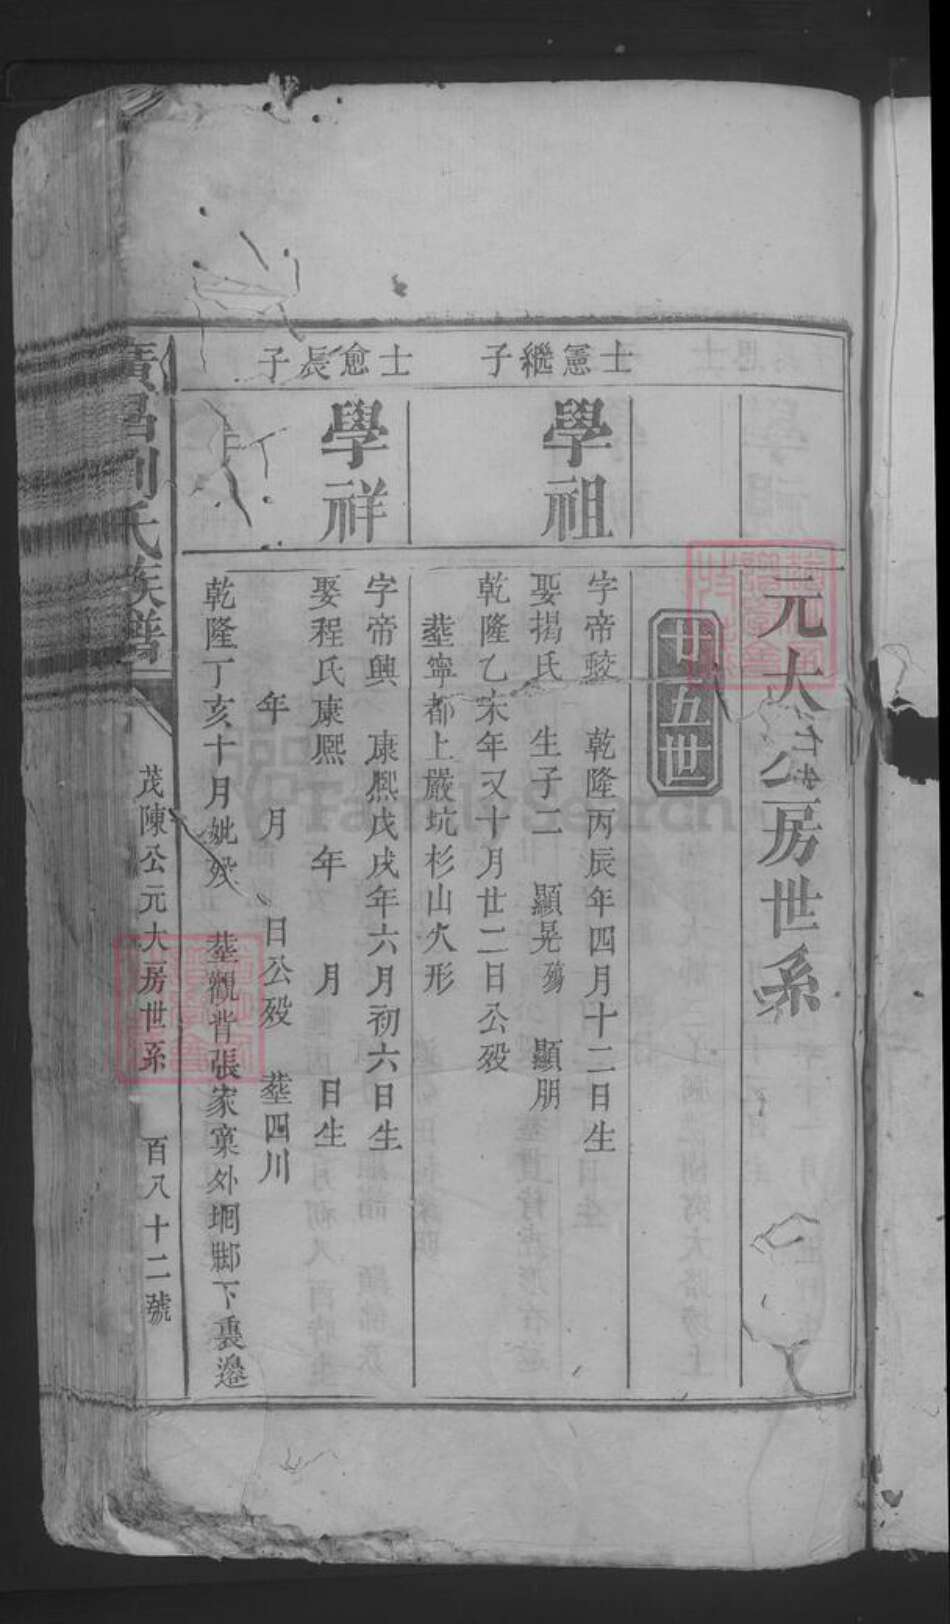 元大公房世系
廿五世
士憲繼子
學祖
字帝鮫 乾隆丙辰年四月十二日生
娶揭氏 生子二 顯晃殤 顯朋
乾隆乙未年又十月廿二日公歿
塟寧都上嚴坑杉山火形
士愈長子
學祥
字帝興 康熙戊戌年六月初六日生
娶程氏康熙 年 月 日生
年 月 日公歿 塟四川
乾隆丁亥十月妣歿 塟觀背張家窠外垇腳下裏邉
廣昌劉氏族譜
茂陳公元大房世系 百八十二號
FamilySearch